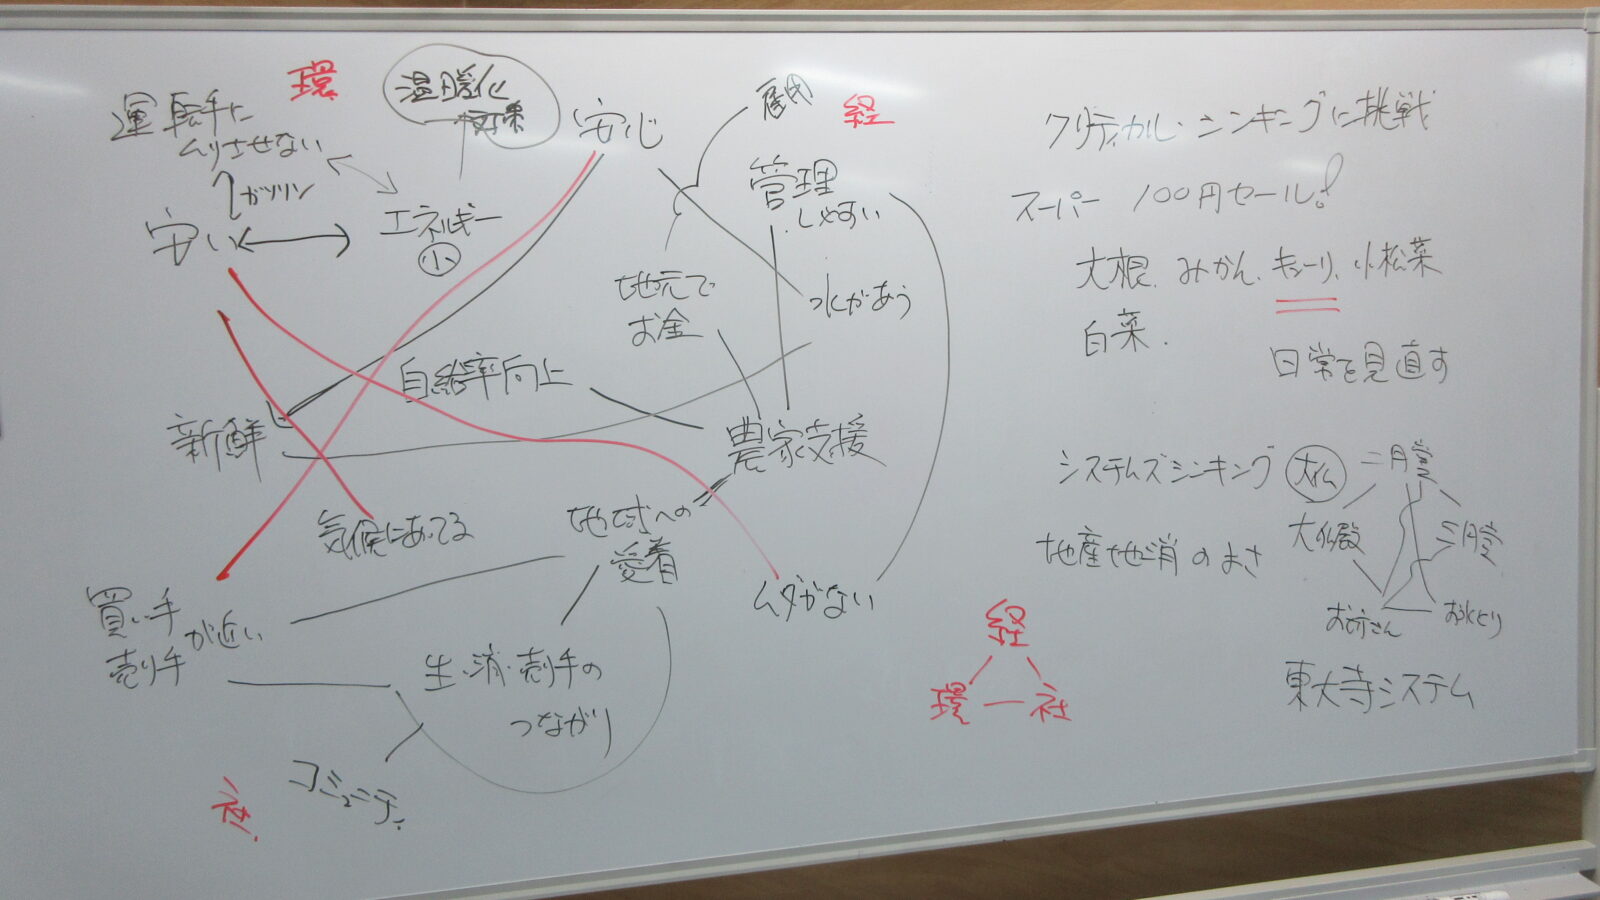 環
温暖化
対策
運転手に
ムリさせない
ガソリン
安い
エネルギー
小
安心
雇用
経
管理
しやすい
地元で
お金
水があう
自給率向上
新鮮
農家支援
気候にあってる
地域への
愛着
ムダがない
買い手
売り手
が近い
生・消・売り手の
つながり
コミュニティ
社
クリティカル・シンキングに挑戦
スーパー 100円セール!
大根、みかん、キューリ、小松菜
白菜.
日常を見直す
システムズシンキング
大仏
二月堂
大仏殿
三月堂
お坊さん
お水とり
東大寺システム
地産地消のよさ
経
環
社